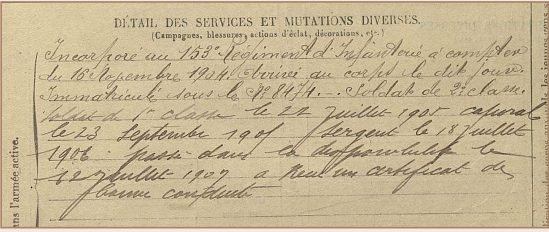 DÉTAIL DES SERVICES ET MUTATIONS DIVERSES.
(Campagnes, blessures, actions d'éclat, décorations, etc.)
Incorporé au 153e Régiment d'Infanterie à compter
du 16 Novembre 1904. Arrivé au corps le dit jour.
Immatriculé sous le No 8474. - Soldat de 2e classe.
Soldat de 1e classe le 22 Juillet 1905 caporal
le 23 Septembre 1905 Sergent le 18 Juillet
1906 passé dans la disponibilité le
12 Juillet 1907 a Reçu un certificat de
bonne conduite
ans l'armée active.